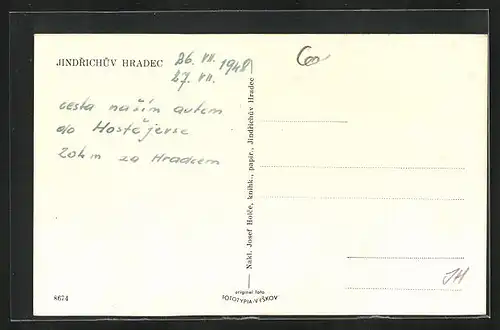 JINDŘICHŮV HRADEC
26. VII. 1948
27. VII.
cesta naším autem
do Hostějevse
20km za Hradcem
Nákl. Josef Holče, knihk., papír., Jindřichův Hradec
original foto
FOTOTYPIA-VYŠKOV
8674
JH